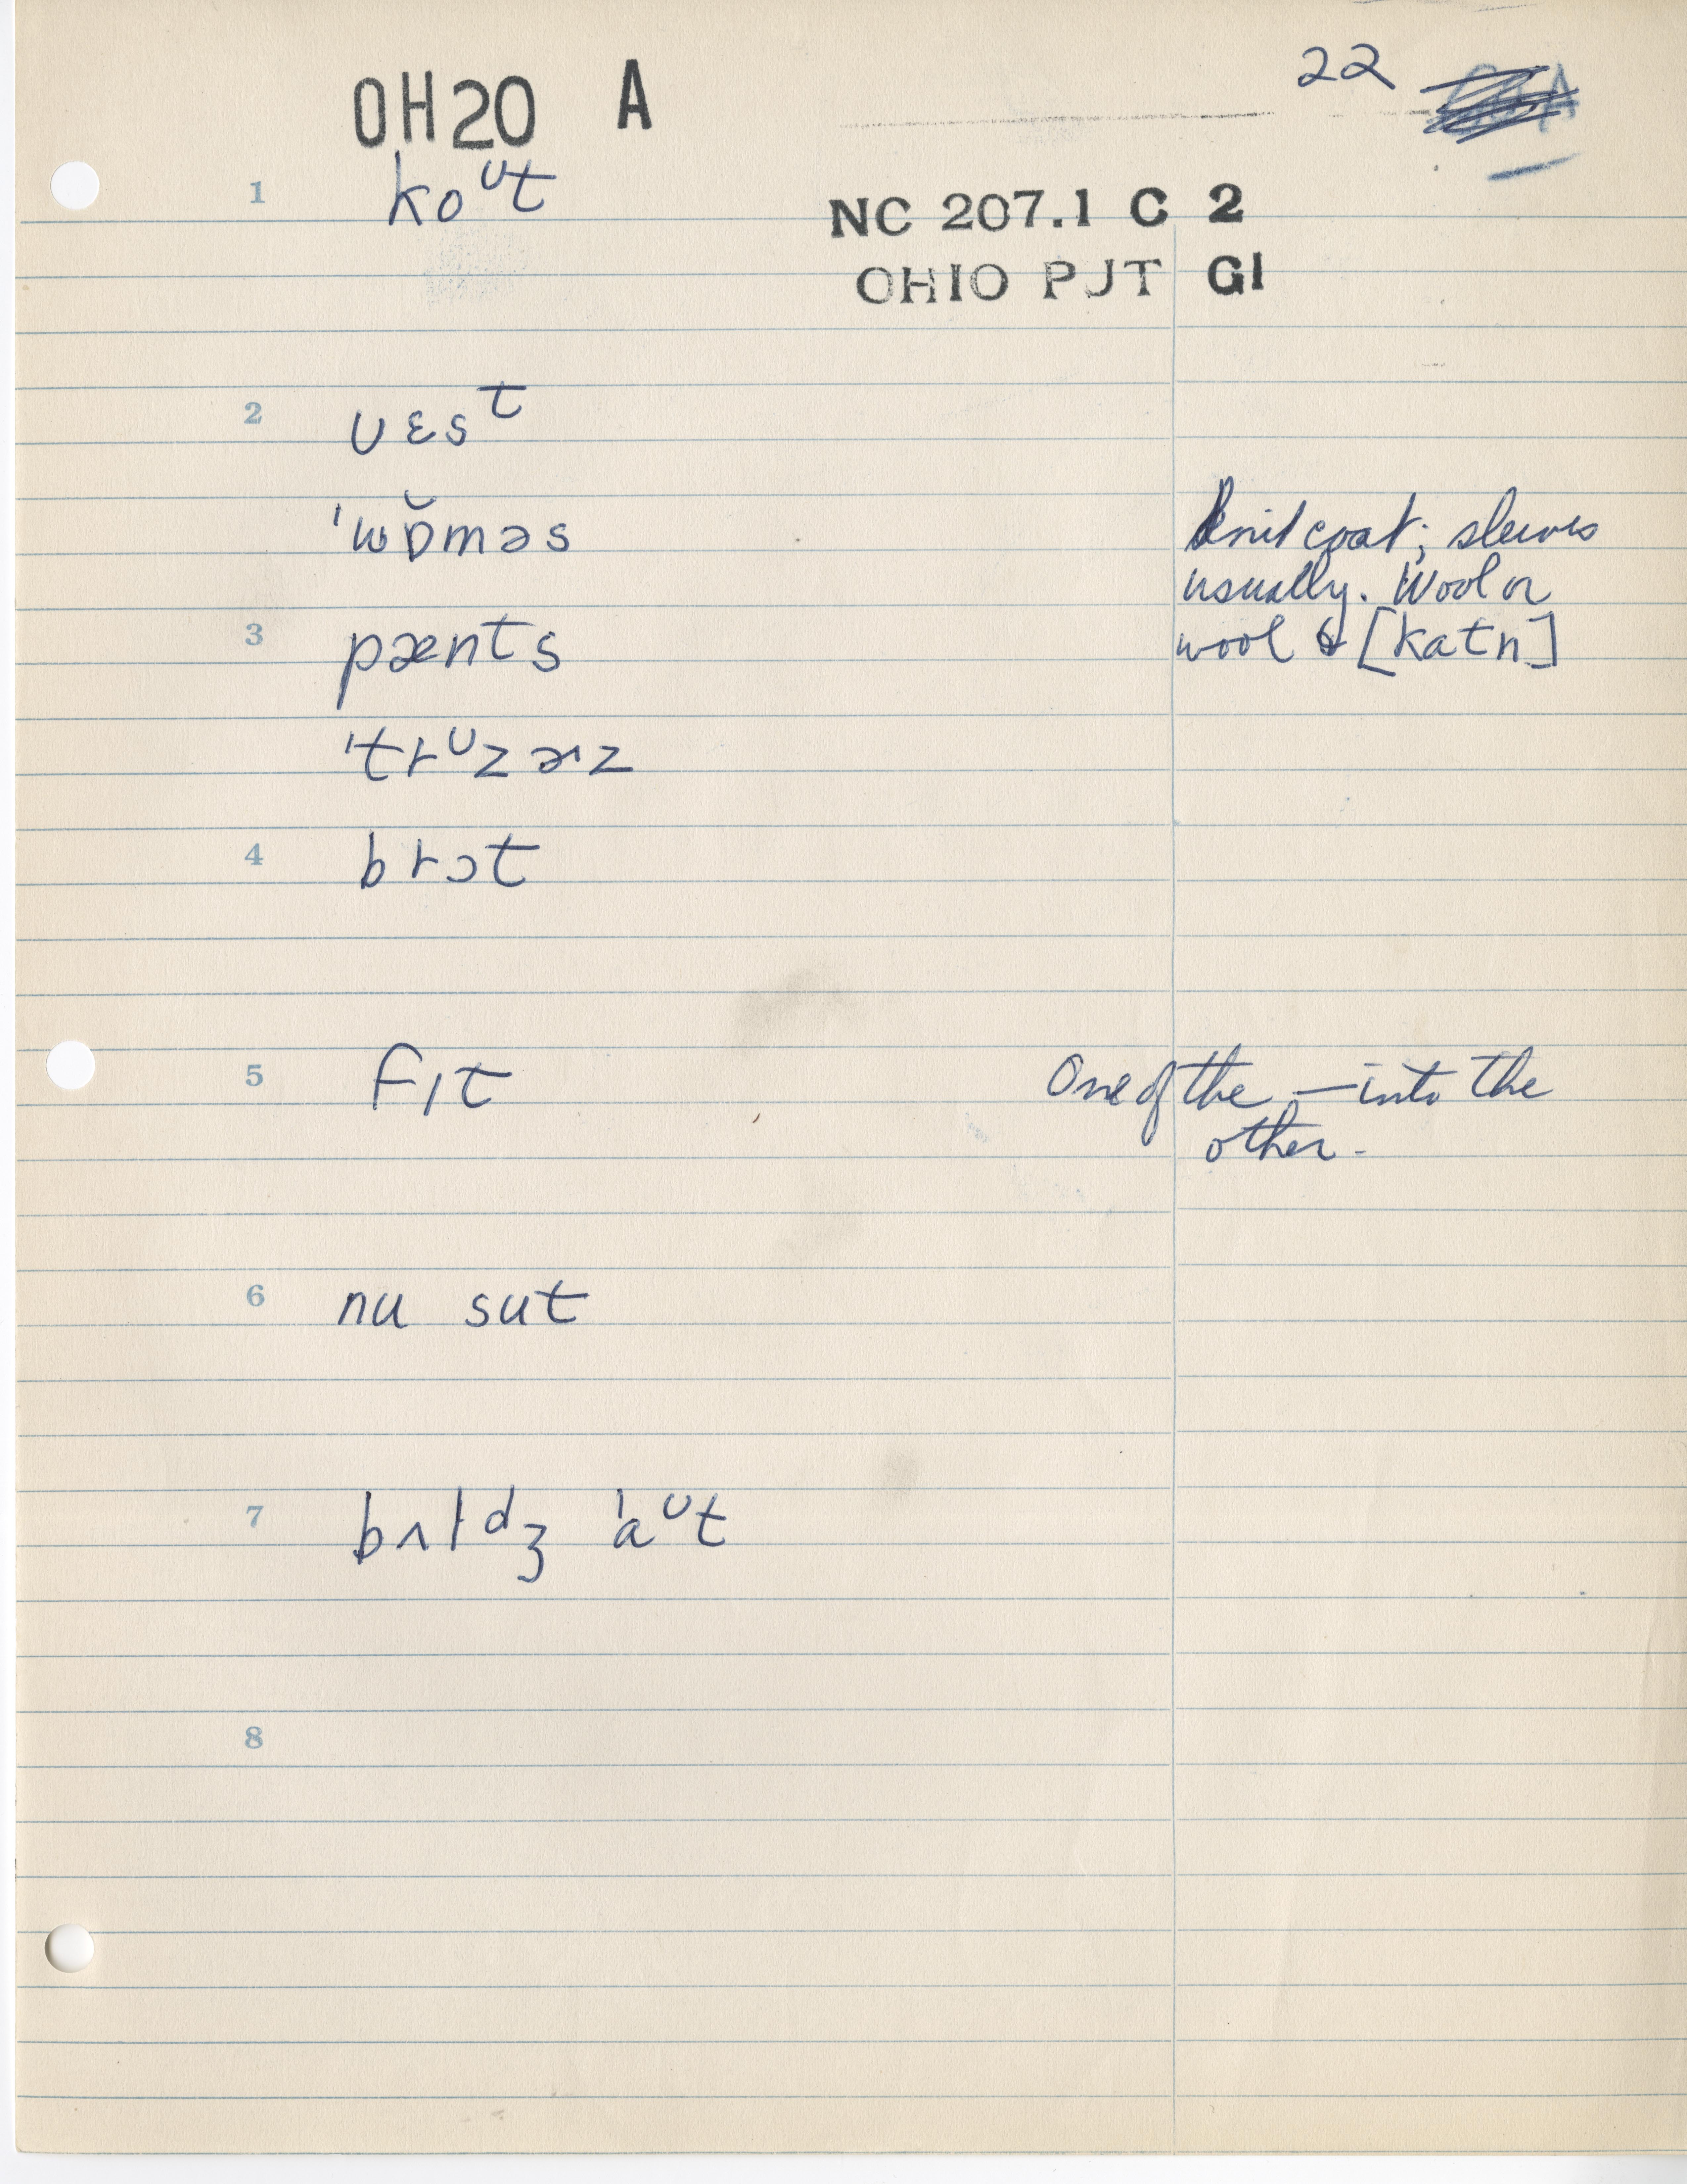 OH20 A
22
1 koᶷt
NC 207.1 C 2
OHIO PJT G1
2 ʋɛsᵗ
ˈwɒ̆məs
Knit coat; sleeves
usually. Wool or
wool & [katn]
3 pænts
ˈtrᶷzɚz
4 brɔt
5 fɪt
One of the — into the
other.
6 nu sut
7 bʌlᵈʒ ˈaᶷt
8